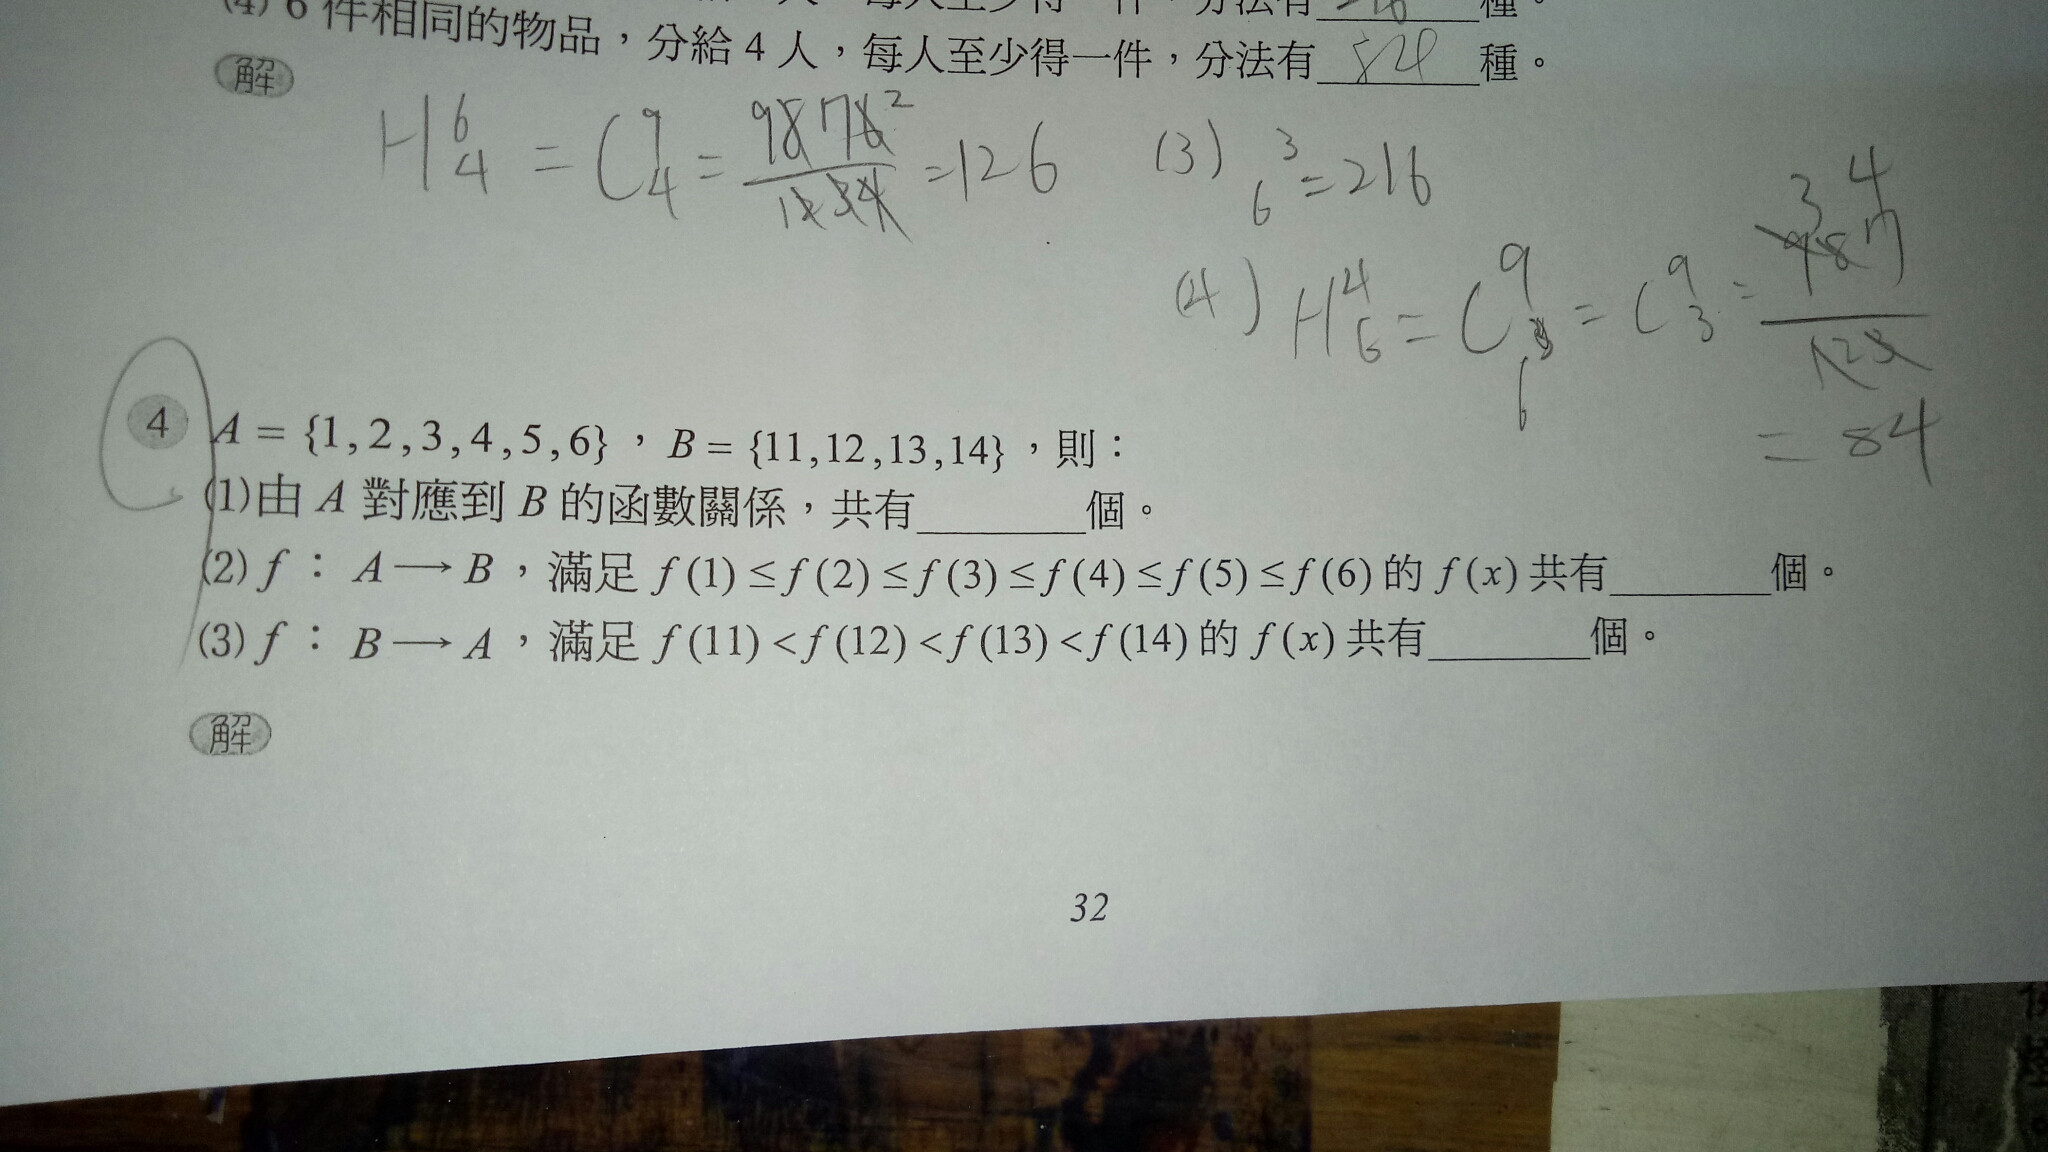 (4) 6 件相同的物品，分給 4 人，每人至少得一件，分法有 84 種。
解
H^6_4 = C^9_4 = 9876^2/1234 = 126 (3) 6^3 = 216
(4) H^4_6 = C^9_6 = C^9_3 = 987/123
3 4
= 84
4 A = {1,2,3,4,5,6}，B = {11,12,13,14}，則：
(1)由 A 對應到 B 的函數關係，共有________個。
(2) f： A⟶B，滿足 f(1)≤f(2)≤f(3)≤f(4)≤f(5)≤f(6) 的 f(x) 共有________個。
(3) f： B⟶A，滿足 f(11)<f(12)<f(13)<f(14) 的 f(x) 共有________個。
解
32